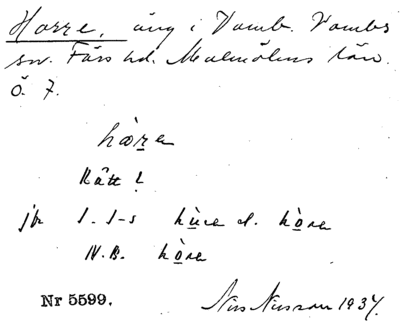 Horre, äng i Vomb. Vombs
sn. Färs hd. Malmöhus län.
Ö. 7.
hòre
Rätt?
jfr J. J-s hùre el. hòre
N.B. hòre
Nr 5599. Nils Nilsson 1937.